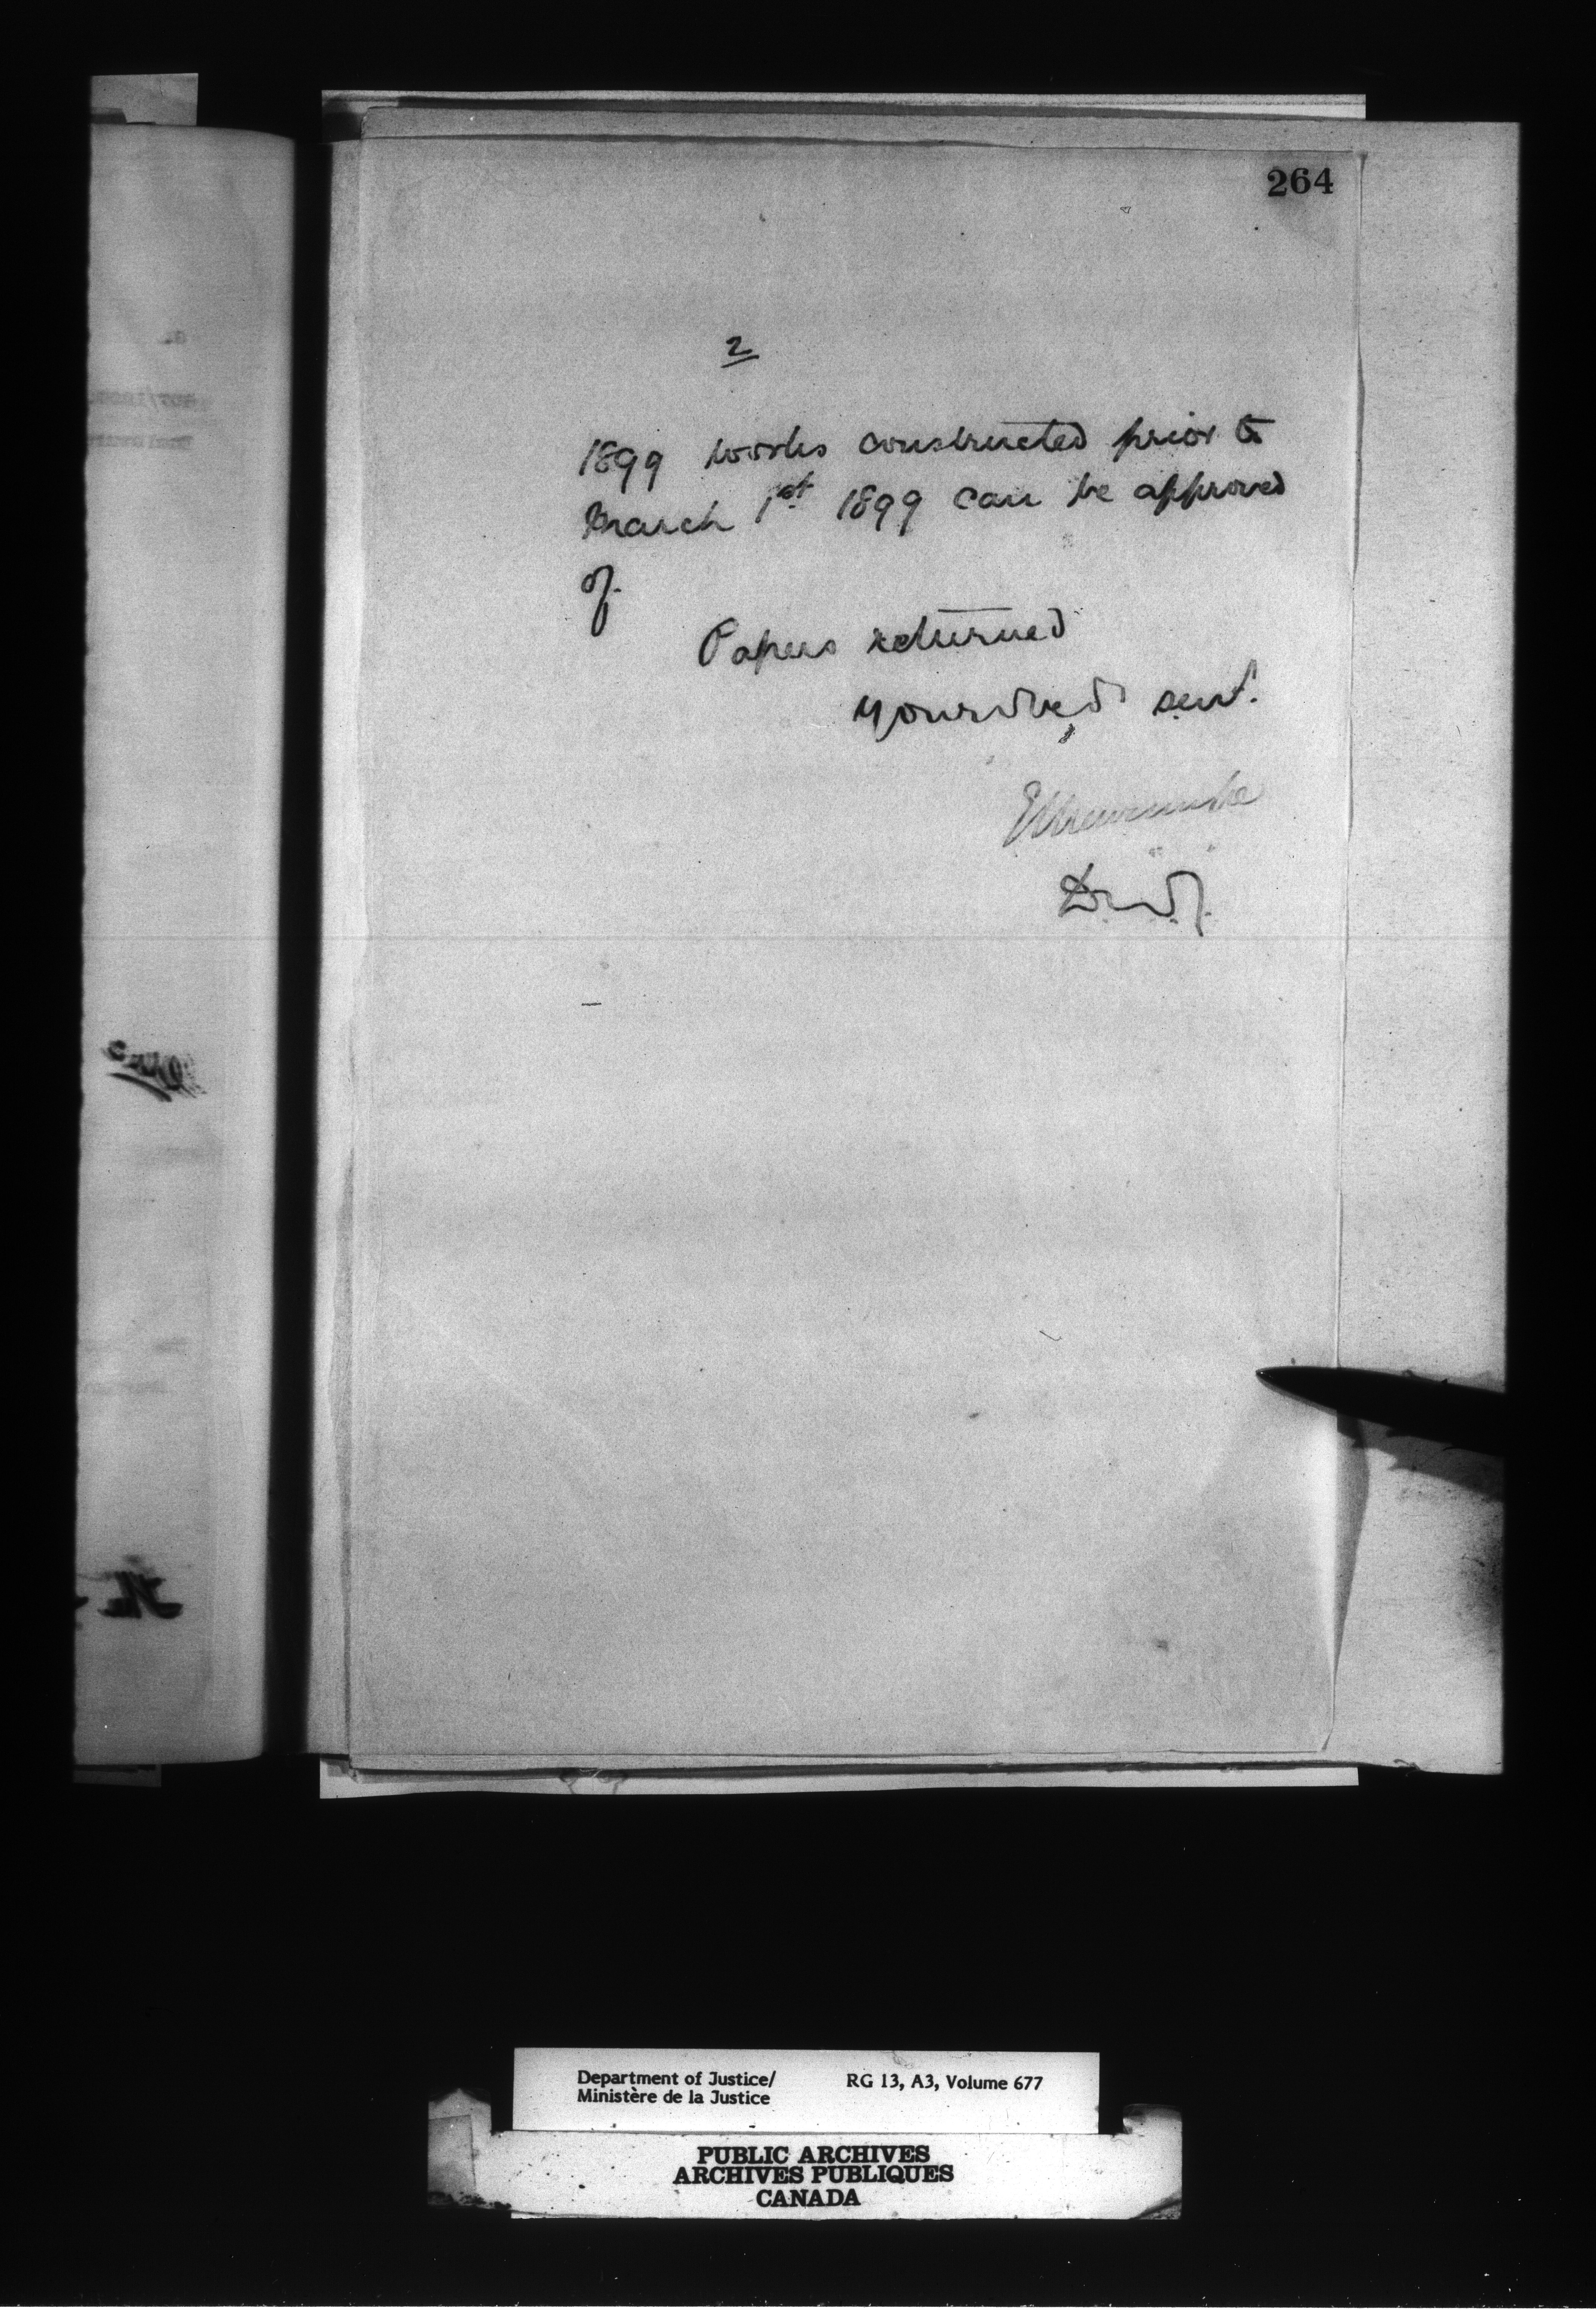 264
2
1899 works constructed prior to
March 1st 1899 can be approved
of.
Papers returned
Your obed servt.
E L Newcombe
D.M.J.
Department of Justice/ RG 13, A3, Volume 677
Ministère de la Justice
PUBLIC ARCHIVES
ARCHIVES PUBLIQUES
CANADA